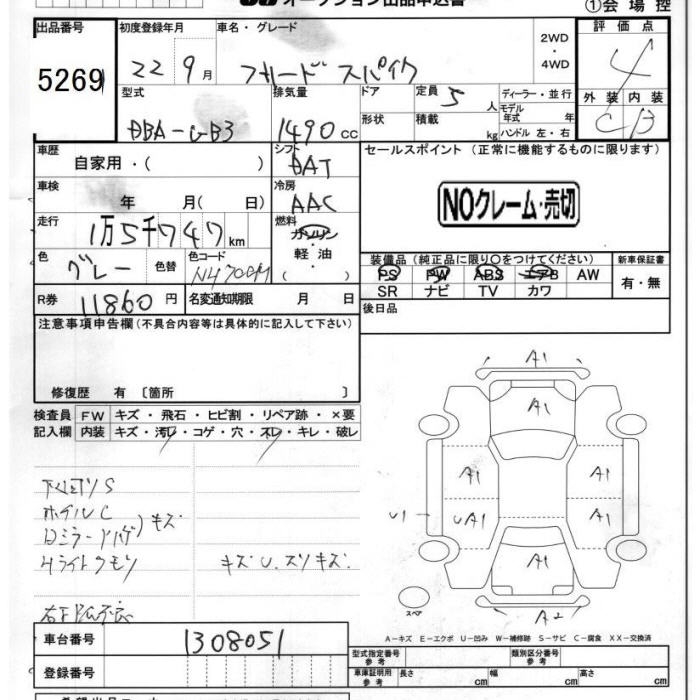 オークション出品申込書
①会場控
出品番号 初度登録年月 車名・グレード 2WD ・ 4WD 評価点
5269 22 9月 フリード スパイク 4
型式 排気量 ドア 定員 5人 ディーラー・並行 外装 内装
DBA-GB3 1490cc 形状 積載 kg モデル年式 年 ハンドル 左・右 C B
車歴 自家用・( ) シフト DAT セールスポイント (正常に機能するものに限ります)
車検 年 月(日) 冷房 AAC NOクレーム・売切
走行 1万5千747km 燃料 ガソリン・軽油・( )
色 グレー 色替 色コード 装備品(純正品に限り○をつけてください) 新車保証書
PS PW ABS エアB AW 有・無
SR ナビ TV カワ
R券 11860円 名変通知期限 月 日 後日品
注意事項申告欄(不具合内容等は具体的に記入して下さい)
修復歴 有〔箇所 〕
検査員記入欄 FW キズ・飛石・ヒビ割・リペア跡・×要
内装 キズ・汚レ・コゲ・穴・スレ・キレ・破レ
ホイルC
キズ
Hライトクモリ
キズU.スリキズ
A1
A1
A1 A1
U1 UA1 A1
A1
スペア A2
A-キズ E-エクボ U-凹み W-補修跡 S-サビ C-腐食 XX-交換済
車台番号 1308051
登録番号
型式指定番号 参考 類別区分番号 参考
車庫証明用 参考 長さ cm 幅 cm 高さ cm